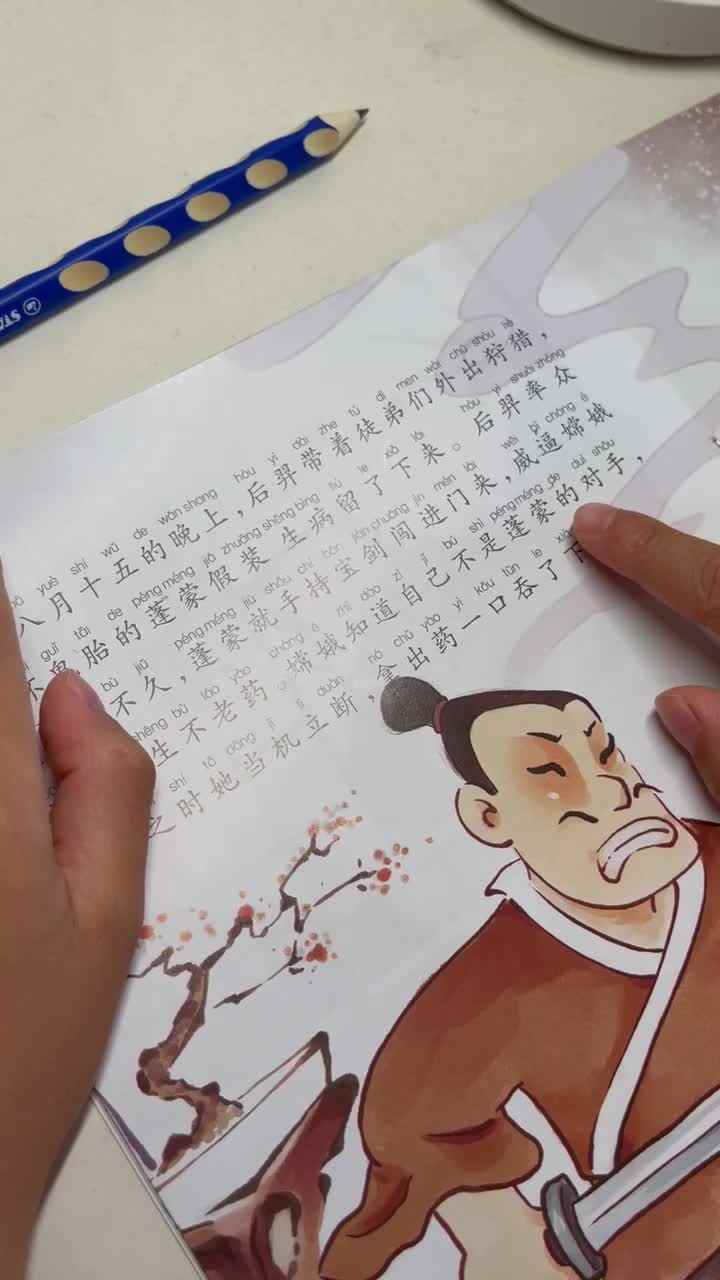 yuè shí wǔ de wǎn shang hòu yì dài zhe tú dì men wài chū shòu liè
八月十五的晚上，后羿带着徒弟们外出狩猎，
guǐ tāi de péng méng jiǎ zhuāng shēng bìng liú le xià lái hòu yì shuài zhòng
怀鬼胎的蓬蒙假装生病留了下来。后羿率众
bù jiǔ péng méng jiù shǒu chí bǎo jiàn chuǎng jìn mén lái wēi bī cháng é
不久，蓬蒙就手持宝剑闯进门来，威逼嫦娥
shēng bù lǎo yào cháng é zhī dào zì jǐ bú shì péng méng de duì shǒu
生不老药。嫦娥知道自己不是蓬蒙的对手，
shí tā dāng jī lì duàn ná chū yào yì kǒu tūn le xià
之时她当机立断，拿出药一口吞了下